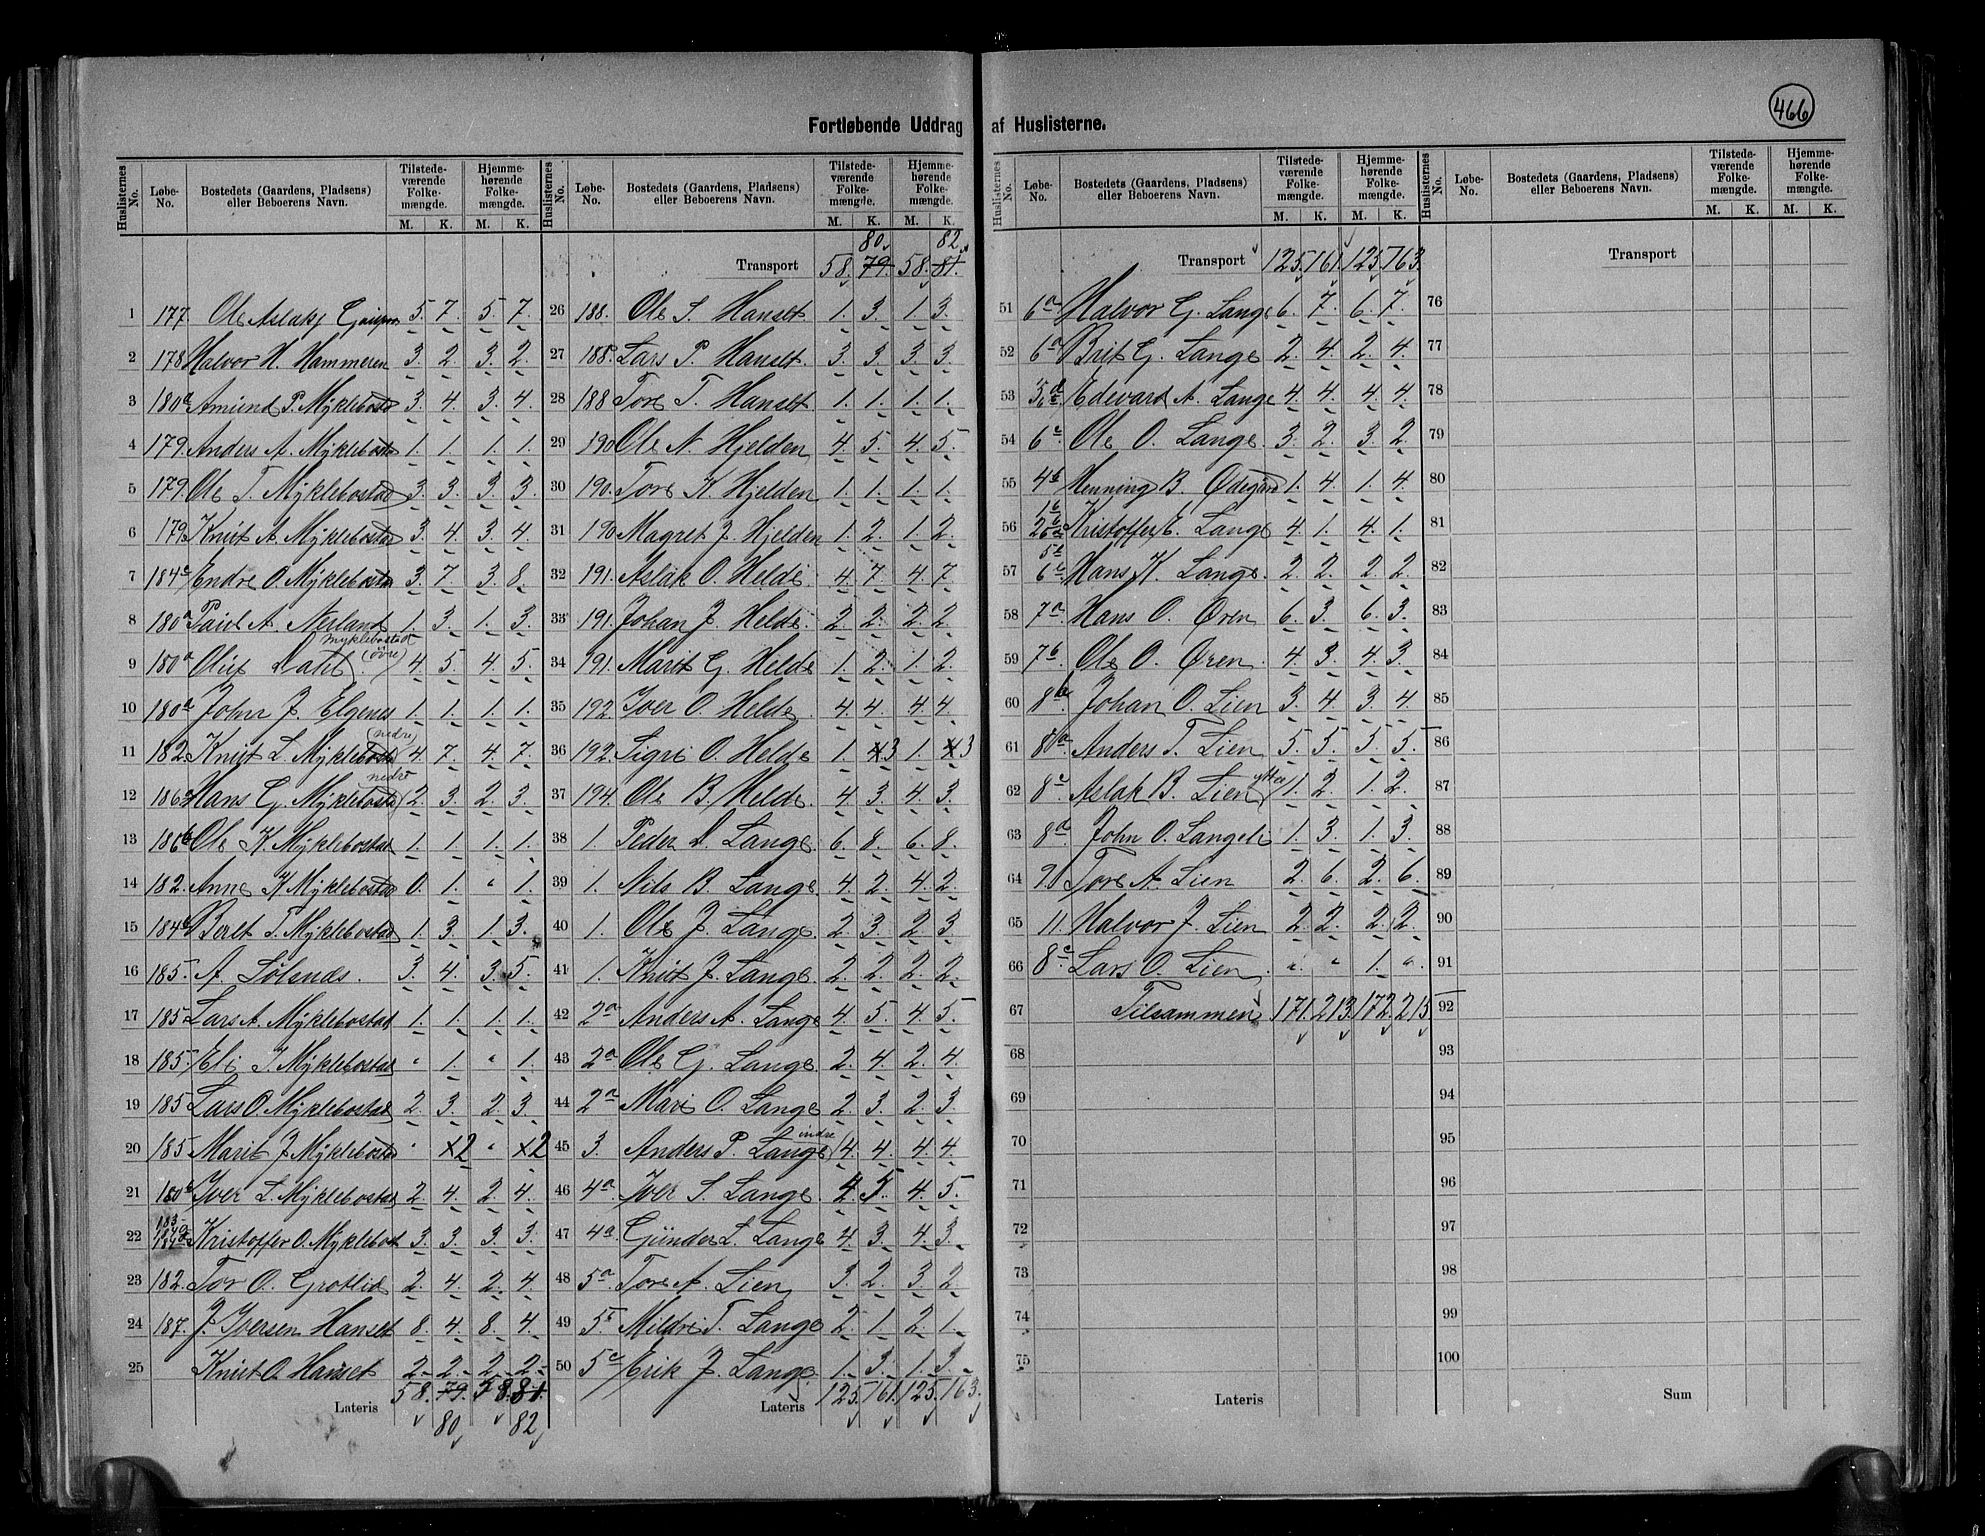 466
Fortløbende Uddrag af Huslisterne.
Huslisternes No. Løbe-No. Bostedets (Gaardens, Pladsens) eller Beboerens Navn. Tilstede-værende Folke-mængde. M. K. Hjemme-hørende Folke-mængde. M. K.
1 177. Ole Aslaksg 5. 7. 5. 7.
2 178 Halvor H. Hammeren 3. 2. 3. 2.
3 180a Amund P. Myklebostad 3. 4. 3. 4.
4 179. Anders A. Myklebostad 1. 1. 1. 1.
5 179. Ole T. Myklebostad 3. 3. 3. 3.
6 179. Knut A. Myklebostad 3. 4. 3. 4.
7 184c Endre O. Myklebostad 3. 7. 3. 8.
8 180a Paul A. Nerland 1. 3. 1. 3.
9 180a Oluf Dahl Myklebostad (övre) 4. 5. 4. 5.
10 180a John J. Elgenes 1. 1. 1. 1.
11 182. Knut L. Myklebostad (nedre) 4. 7. 4. 7.
12 186a Hans G. Myklebostad nedre 2. 3. 2. 3.
13 186b Ole K. Myklebostad 1. 1. 1. 1.
14 182. Anne K Myklebostad 0. 1. " 1.
15 184b Beret P. Myklebostad 1. 3. 1. 3.
16 185. A. Sølsnes. 3. 4. 3. 5.
17 185. Lars A. Myklebostad 1. 1. 1. 1.
18 185 Eli J. Myklebostad " 1. " 1.
19 185 Lars O. Myklebostad 2. 3. 2. 3.
20 185 Marit J Myklebostad " x2 " x2
21 180b Iver L. Myklebostad 2. 4. 2. 4.
22 183. 184a Kristoffer O. Myklebost 3. 3. 3. 3.
23 182. Tor O. Grotlid 2. 4. 2. 4.
24 187. J. Iversen Hanset 8. 4. 8. 4.
25 Knut O. Hanset 2. 2. 2. 2.
Lateris 58. 79. 58. 81.
80 82
Huslisternes No. Løbe-No. Bostedets (Gaardens, Pladsens) eller Beboerens Navn. Tilstede-værende Folke-mængde. M. K. Hjemme-hørende Folke-mængde. M. K.
80. 82.
Transport 58. 79. 58. 81.
26 188. Ole S. Hanset 1. 3. 1. 3.
27 188. Lars P. Hanset. 3. 3. 3. 3.
28 188 Tore T. Hanset 1. 1. 1. 1.
29 190 Ole N. Hjelden 4. 5. 4. 5.
30 190. Tore K. Hjelden 1. 1. 1. 1.
31 190 Magret J. Hjelden 1. 2. 1. 2.
32 191. Aslak O. Helde 4. 7. 4. 7.
33 191. Johan J. Helde. 2. 2. 2. 2.
34 191. Marit G. Helde 1. 2. 1. 2.
35 192. Iver O. Helde. 4. 4. 4. 4.
36 192. Sigri O. Helde 1. x3 1. x3
37 194. Ole B. Helde. 4. 3. 4. 3.
38 1. Peder D. Lange. 6. 8. 6. 8.
39 1. Nils B. Lange. 4. 2. 4. 2.
40 1. Ole J. Lange. 2. 3. 2. 3.
41 1. Knut J. Lange 2. 2. 2. 2.
42 2a Anders A. Lange 4. 5. 4. 5.
43 2a Ole G. Lange 2. 4. 2. 4.
44 2a Mari O. Lange 2. 3. 2. 3.
45 3. Anders P. Lange indre 4. 4. 4. 4.
46 4a Iver S. Lange 4. 5. 4. 5.
47 4a Gunder L. Lange 4. 3. 4. 3.
48 5a Tore A. Lien 3. 2. 3. 2.
49 5b Mildri T. Lange 2. 1. 2. 1.
50 5c Erik J. Lange. 1. 3. 1. 3.
Lateris 125. 161. 125. 163.
Huslisternes No. Løbe-No. Bostedets (Gaardens, Pladsens) eller Beboerens Navn. Tilstede-værende Folke-mængde. M. K. Hjemme-hørende Folke-mængde. M. K.
Transport 125. 161. 125. 163.
51 6a Halvor G. Lange 6. 7. 6. 7.
52 6a Brit G. Lange 2. 4. 2. 4.
53 Edevard A. Lange 4. 4. 4. 4.
54 Ole O. Lange. 3. 2. 3. 2.
55 4b Henning B. Ødegård 1. 4. 1. 4.
56 Kristoffer E. Lange 4. 1. 4. 1.
57 Hans K. Lange. 2. 2. 2. 2.
58 7a Hans O. Øren 6. 3. 6. 3.
59 7b Ole O. Øren. 4. 3. 4. 3.
60 8b Johan O. Lien 3. 4. 3. 4.
61 8a Anders T. Lien 5. 5. 5. 5.
62 8c Aslak B. Lien ytter 1. 2. 1. 2.
63 8d John O. Langeli 1. 3. 1. 3.
64 9. Tore A. Lien 2. 6. 2. 6.
65 11. Halvor J. Lien 2. 2. 2. 2.
66 8c Lars O. Lien " " 1. "
67 Tilsammen 171. 213. 172. 215
68
69
70
71
72
73
74
75
Lateris
Huslisternes No. Løbe-No. Bostedets (Gaardens, Pladsens) eller Beboerens Navn. Tilstede-værende Folke-mængde. M. K. Hjemme-hørende Folke-mængde. M. K.
Transport
76
77
78
79
80
81
82
83
84
85
86
87
88
89
90
91
92
93
94
95
96
97
98
99
100
Sum